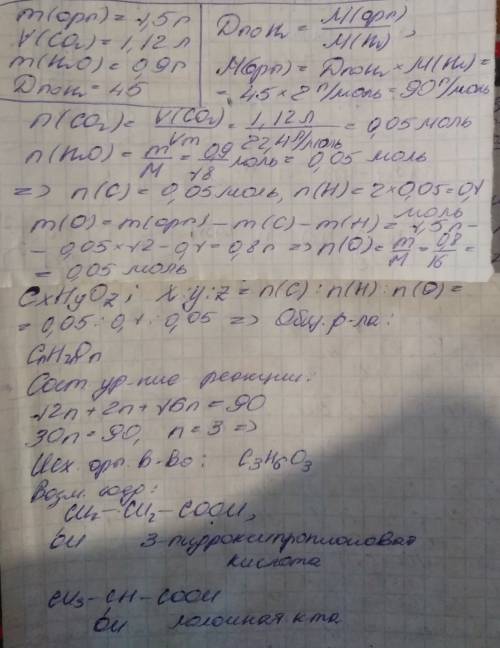 m(орг) = 1,5 г
V(CO₂) = 1,12 л
m(H₂O) = 0,9 г
D по H₂ = 45
D по H₂ = M(орг)/M(H₂),
M(орг) = D по H₂ × M(H₂) =
= 45 × 2 г/моль = 90 г/моль
n(CO₂) = V(CO₂)/Vm = 1,12 л/22,4 л/моль = 0,05 моль
n(H₂O) = m/M = 0,9/18 моль = 0,05 моль
=> n(C) = 0,05 моль, n(H) = 2×0,05 = 0,1
моль
m(O) = m(орг) - m(C) - m(H) = 1,5 г -
- 0,05×12 - 0,1 = 0,8 г => n(O) = m/M = 0,8/16 =
= 0,05 моль
CxHyOz; x:y:z = n(C):n(H):n(O) =
= 0,05:0,1:0,05 => Общ. ф-ла:
CnH2nOn
Сост ур-ние реакции:
12n + 2n + 16n = 90
30n = 90, n = 3 =>
Исх. орг. в-во: C₃H₆O₃
Возм.
CH₂-CH₂-COOH,
OH 3-гидроксипропионовая
кислота
CH₃-CH-COOH
OH молочная к-та